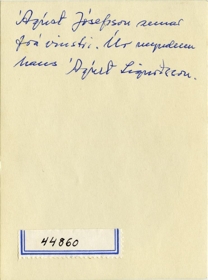 Ágúst Jósefsson annar
frá vinstri. Úr myndum
hans Ágúst Sigurðsson.
44860